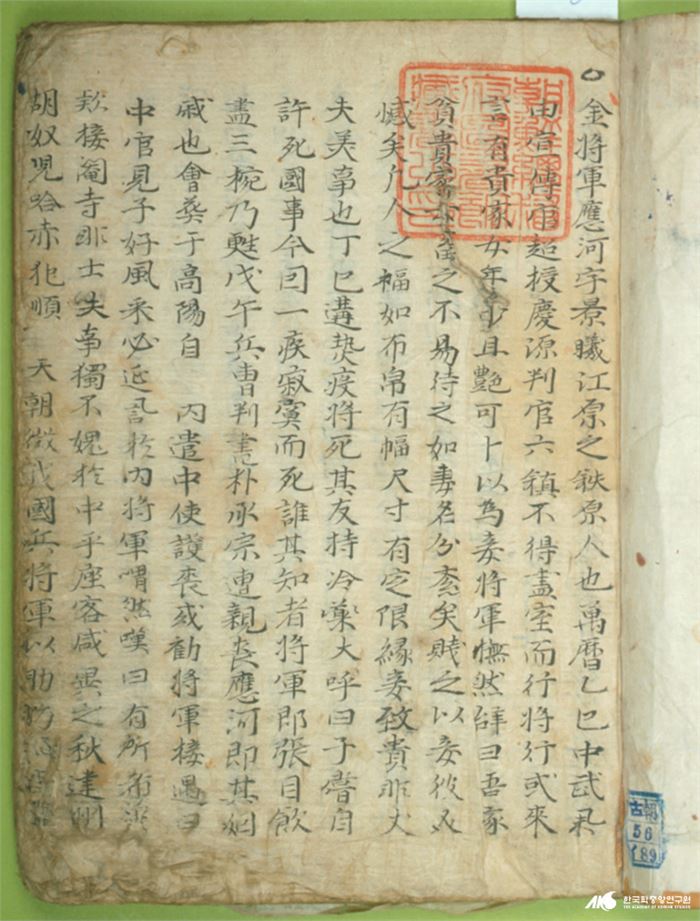 金將軍應河字景曦江原之鉄原人也萬曆乙巳中武科
由宣傳官超授慶源判官六鎮不得盡室而行將行或來
言有貴家女年少且艶可卜以爲妾將軍憮然辞曰吾家
貧貴家畜之不易待之如妻名分紊矣賤之以妾彼又
憾矣凡人之福如布帛有幅尺寸有定限緣妾致貴非丈
夫美事也丁巳遘热疫將死其友持冷藥大呼曰子嘗自
許死國事今囙一疾寂寞而死誰其知者將軍即張目飲
盡三椀乃甦戊午兵曹判書朴承宗遭親喪應河即其姻
戚也會葬于高陽自 內遣中使護喪或勸將軍接遇曰
中官見子好風采必延譽於內將軍喟然嘆曰有所希冀
欵接閹寺非士夫事獨不媿於中乎座客咸異之秋建州
胡奴児哈赤犯順 天朝徵我國兵將軍以助防
古朝
56
189
AKS 한국학중앙연구원
THE ACADEMY OF KOREAN STUDIES